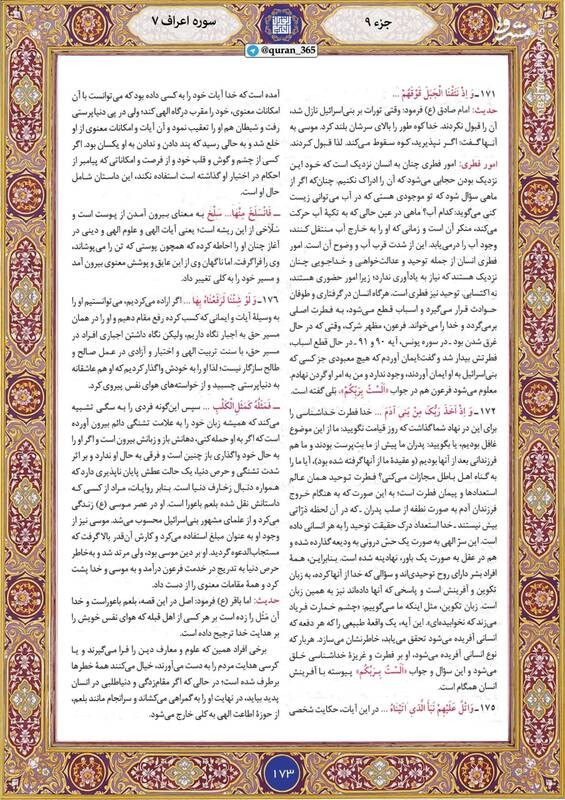 جزء ۹
سوره اعراف ۷
مشرق
@quran_365
۱۷۱ـ وَ اِذْ نَتَقْنَا الْجَبَلَ فَوْقَهُمْ ...
حدیث: امام صادق (ع) فرمود: وقتی تورات بر بنی‌اسرائیل نازل شد،
آن را قبول نکردند. خدا کوه طور را بالای سرشان بلند کرد. موسی به
آنها گفت: اگر نپذیرید، کوه سقوط می‌کند. لذا قبول کردند.
امور فطری: امور فطری چنان به انسان نزدیک است که خود این
نزدیک بودن حجابی می‌شود که آن را ادراک نکنیم. چنان‌که اگر از
ماهی سؤال شود که تو موجودی هستی که در آب می‌توانی زیست
کنی می‌گوید: کدام آب؟ ماهی در عین حالی که به تکیهٔ آب حرکت
می‌کند، منکر آن است و زمانی که او را به خارج آب منتقل کنند،
وجود آب را درمی‌یابد. این از شدت قرب آب و وضوح آن است. امور
فطری انسان از جمله توحید و عدالت‌خواهی و خداجویی چنان
نزدیک هستند که نیاز به یادآوری ندارد؛ زیرا امور حضوری هستند،
نه اکتسابی. توحید نیز فطری است. هرگاه انسان در گرفتاری و طوفان
حوادث قرار می‌گیرد و اسباب قطع می‌شود، به فطرت اصلی
برمی‌گردد و خدا را می‌خواند. فرعون، مظهر شرک، وقتی که در حال
غرق شدن بود ـ در سوره یونس، آیه ۹۰ و ۹۱ ـ در حال قطع اسباب،
فطرتش بیدار شد و گفت: ایمان آوردم که هیچ معبودی جز کسی که
بنی‌اسرائیل به او ایمان آوردند، وجود ندارد و من به امر او گردن نهادم.
معلوم می‌شود فرعون هم در جواب «اَلَسْتُ بِرَبِّکُمْ»، بلی گفته است.
۱۷۲ـ وَ اِذْ اَخَذَ رَبُّکَ مِنْ بَنی آدَمَ ... خدا فطرت خداشناسی را
برای این در نهاد شما گذاشت که روز قیامت نگویید: ما از این موضوع
غافل بودیم، یا بگویید: پدران ما پیش از ما بت‌پرست بودند و ما هم
فرزندانی بعد از آنها بودیم (و عقیدهٔ ما از آنها گرفته شده بود)، آیا ما را
به گناه اهل باطل مجازات می‌کنی؟ فطرت توحید همان عالم
استعدادها و پیمان فطرت است؛ به این صورت که به هنگام خروج
فرزندان آدم به صورت نطفه از صلب پدران ـ که در آن لحظه ذرّاتی
بیش نیستند ـ خدا استعداد درک حقیقت توحید را به هر انسانی داده
است. این سرّ الهی به صورت یک حسّ درونی به ودیعه گذارده شده و
هم در عقل به صورت یک باور، نهادینه شده است. بنابراین، همهٔ
افراد بشر دارای روح توحیدی‌اند و سؤالی که خدا از آنها کرده، به زبان
تکوین و آفرینش است و پاسخی که آنها داده‌اند نیز به همین زبان
است. زبان تکوین، مثل اینکه ما می‌گوییم: «چشم خمارت فریاد
می‌زند که نخوابیده‌ای». این آیه، یک واقعهٔ طبیعی را که هر دفعه که
انسانی آفریده می‌شود تحقق می‌یابد، خاطرنشان می‌سازد. هربار که
نوع انسانی آفریده می‌شود، او بر فطرت و غریزهٔ خداشناسی خلق
می‌شود و این سؤال و جواب «اَلَسْتُ بِرَبِّکُمْ» پیوسته با آفرینش
انسان همگام است.
۱۷۵ـ وَ اتْلُ عَلَیْهِمْ نَبَأَ الَّذی اتَیْناهُ ... در این آیات، حکایت شخصی
آمده است که خدا آیات خود را به کسی داده بود که می‌توانست با آن
امکانات معنوی، خود را مقرب درگاه الهی کند؛ ولی در پی دنیاپرستی
رفت و شیطان هم او را تعقیب نمود و آن آیات و امکانات معنوی از او
خلع شد و به حالی رسید که پند دادن و ندادن به او یکسان بود. اگر
کسی از چشم و گوش و قلب خود و از فرصت و امکاناتی که پیامبر از
احکام در اختیار او گذاشته است استفاده نکند، این داستان شامل
حال او است.
ـ فَانْسَلَخَ مِنْها... سَلَخَ به معنای بیرون آمدن از پوست است و
سَلّاخی از این ریشه است؛ یعنی آیات الهی و علوم الهی و دینی در
آغاز چنان او را احاطه کرده که همچون پوستی که تن را می‌پوشاند،
وی را فرا گرفت. اما ناگهان وی از این عایق و پوشش معنوی بیرون آمد
و مسیر خود را به کلی تغییر داد.
۱۷۶ـ وَ لَوْ شِئْنا لَرَفَعْناهُ بِها... اگر اراده می‌کردیم، می‌توانستیم او را
به وسیلهٔ آیات و ایمانی که کسب کرده رفع مقام دهیم و او را در همان
مسیر حق به اجبار نگاه داریم، ولیکن نگاه داشتن اجباری افراد در
مسیر حق، با سنت تربیت الهی و اختیار و آزادی در عمل صالح و
طالح سازگار نیست؛ لذا او را به خودش واگذار کردیم که او هم عاشقانه
به دنیاپرستی چسبید و از خواسته‌های هوای نفس پیروی کرد.
ـ فَمَثَلُهُ کَمَثَلِ الْکَلْبِ ... سپس این‌گونه فردی را به سگی تشبیه
می‌کند که همیشه زبان خود را به علامت تشنگی دائم بیرون آورده
است که اگر به او حمله کنی، دهانش باز و زبانش بیرون است و اگر او را
به حال خود واگذاری باز چنین است و فرقی به حال او ندارد و بر اثر
شدت تشنگی و حرص دنیا، یک حالت عطش پایان ناپذیری دارد که
همواره دنبال زخارف دنیا است. بنابر روایات، مراد از کسی که
داستانش نقل شده بلعم باعورا است. او در عصر موسی (ع) زندگی
می‌کرد و از علمای مشهور بنی‌اسرائیل محسوب می‌شد. موسی نیز از
وجود او به عنوان مبلغ استفاده می‌کرد و کارش آن‌قدر بالا گرفت که
مستجاب‌الدعوه گردید. او بر دین موسی بود، ولی مرتد شد و به‌خاطر
حرص دنیا به تدریج در خدمت فرعون درآمد و به موسی و خدا پشت
کرد و همهٔ مقامات معنوی را از دست داد.
حدیث: اما باقر (ع) فرمود: اصل در این قصه، بلعم باعوراست و خدا
آن مثَل را زده است بر هر کسی از اهل قبله که هوای نفس خویش را
بر هدایت خدا ترجیح داده است.
برخی افراد همین که علوم و معارف دین را فرا می‌گیرند و یا
کرسی هدایت مردم را به دست می‌آورند، خیال می‌کنند همهٔ خطرها
برطرف شده است؛ در حالی که اگر مقام‌زدگی و دنیاطلبی در انسان
پدید بیاید، در نهایت او را به گمراهی می‌کشاند و سرانجام مانند بلعم،
از حوزهٔ اطاعت الهی به کلی خارج می‌شود.
۱۷۳